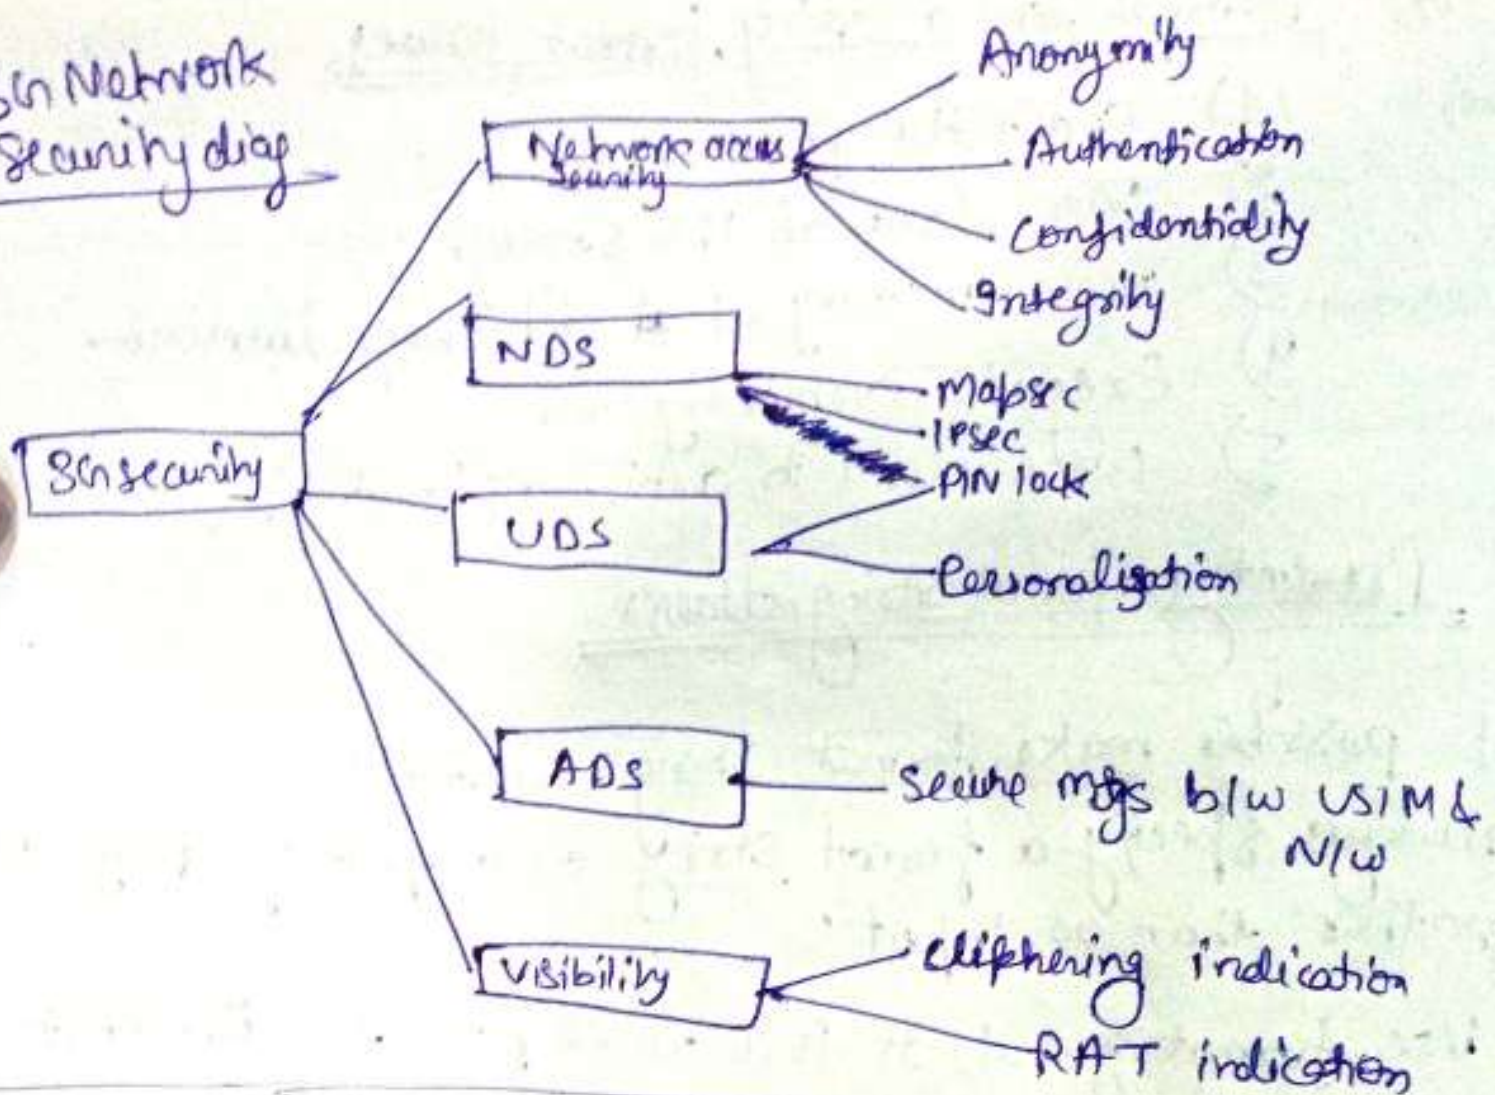 3G Network
Security diag
Network access
security
Anonymity
Authentication
Confidentiality
Integrity
NDS
Mapsec
IPsec
PIN lock
3G security
UDS
Personalization
ADS
Secure msgs b/w USIM &
N/W
Visibility
Cliphering indication
RAT indication